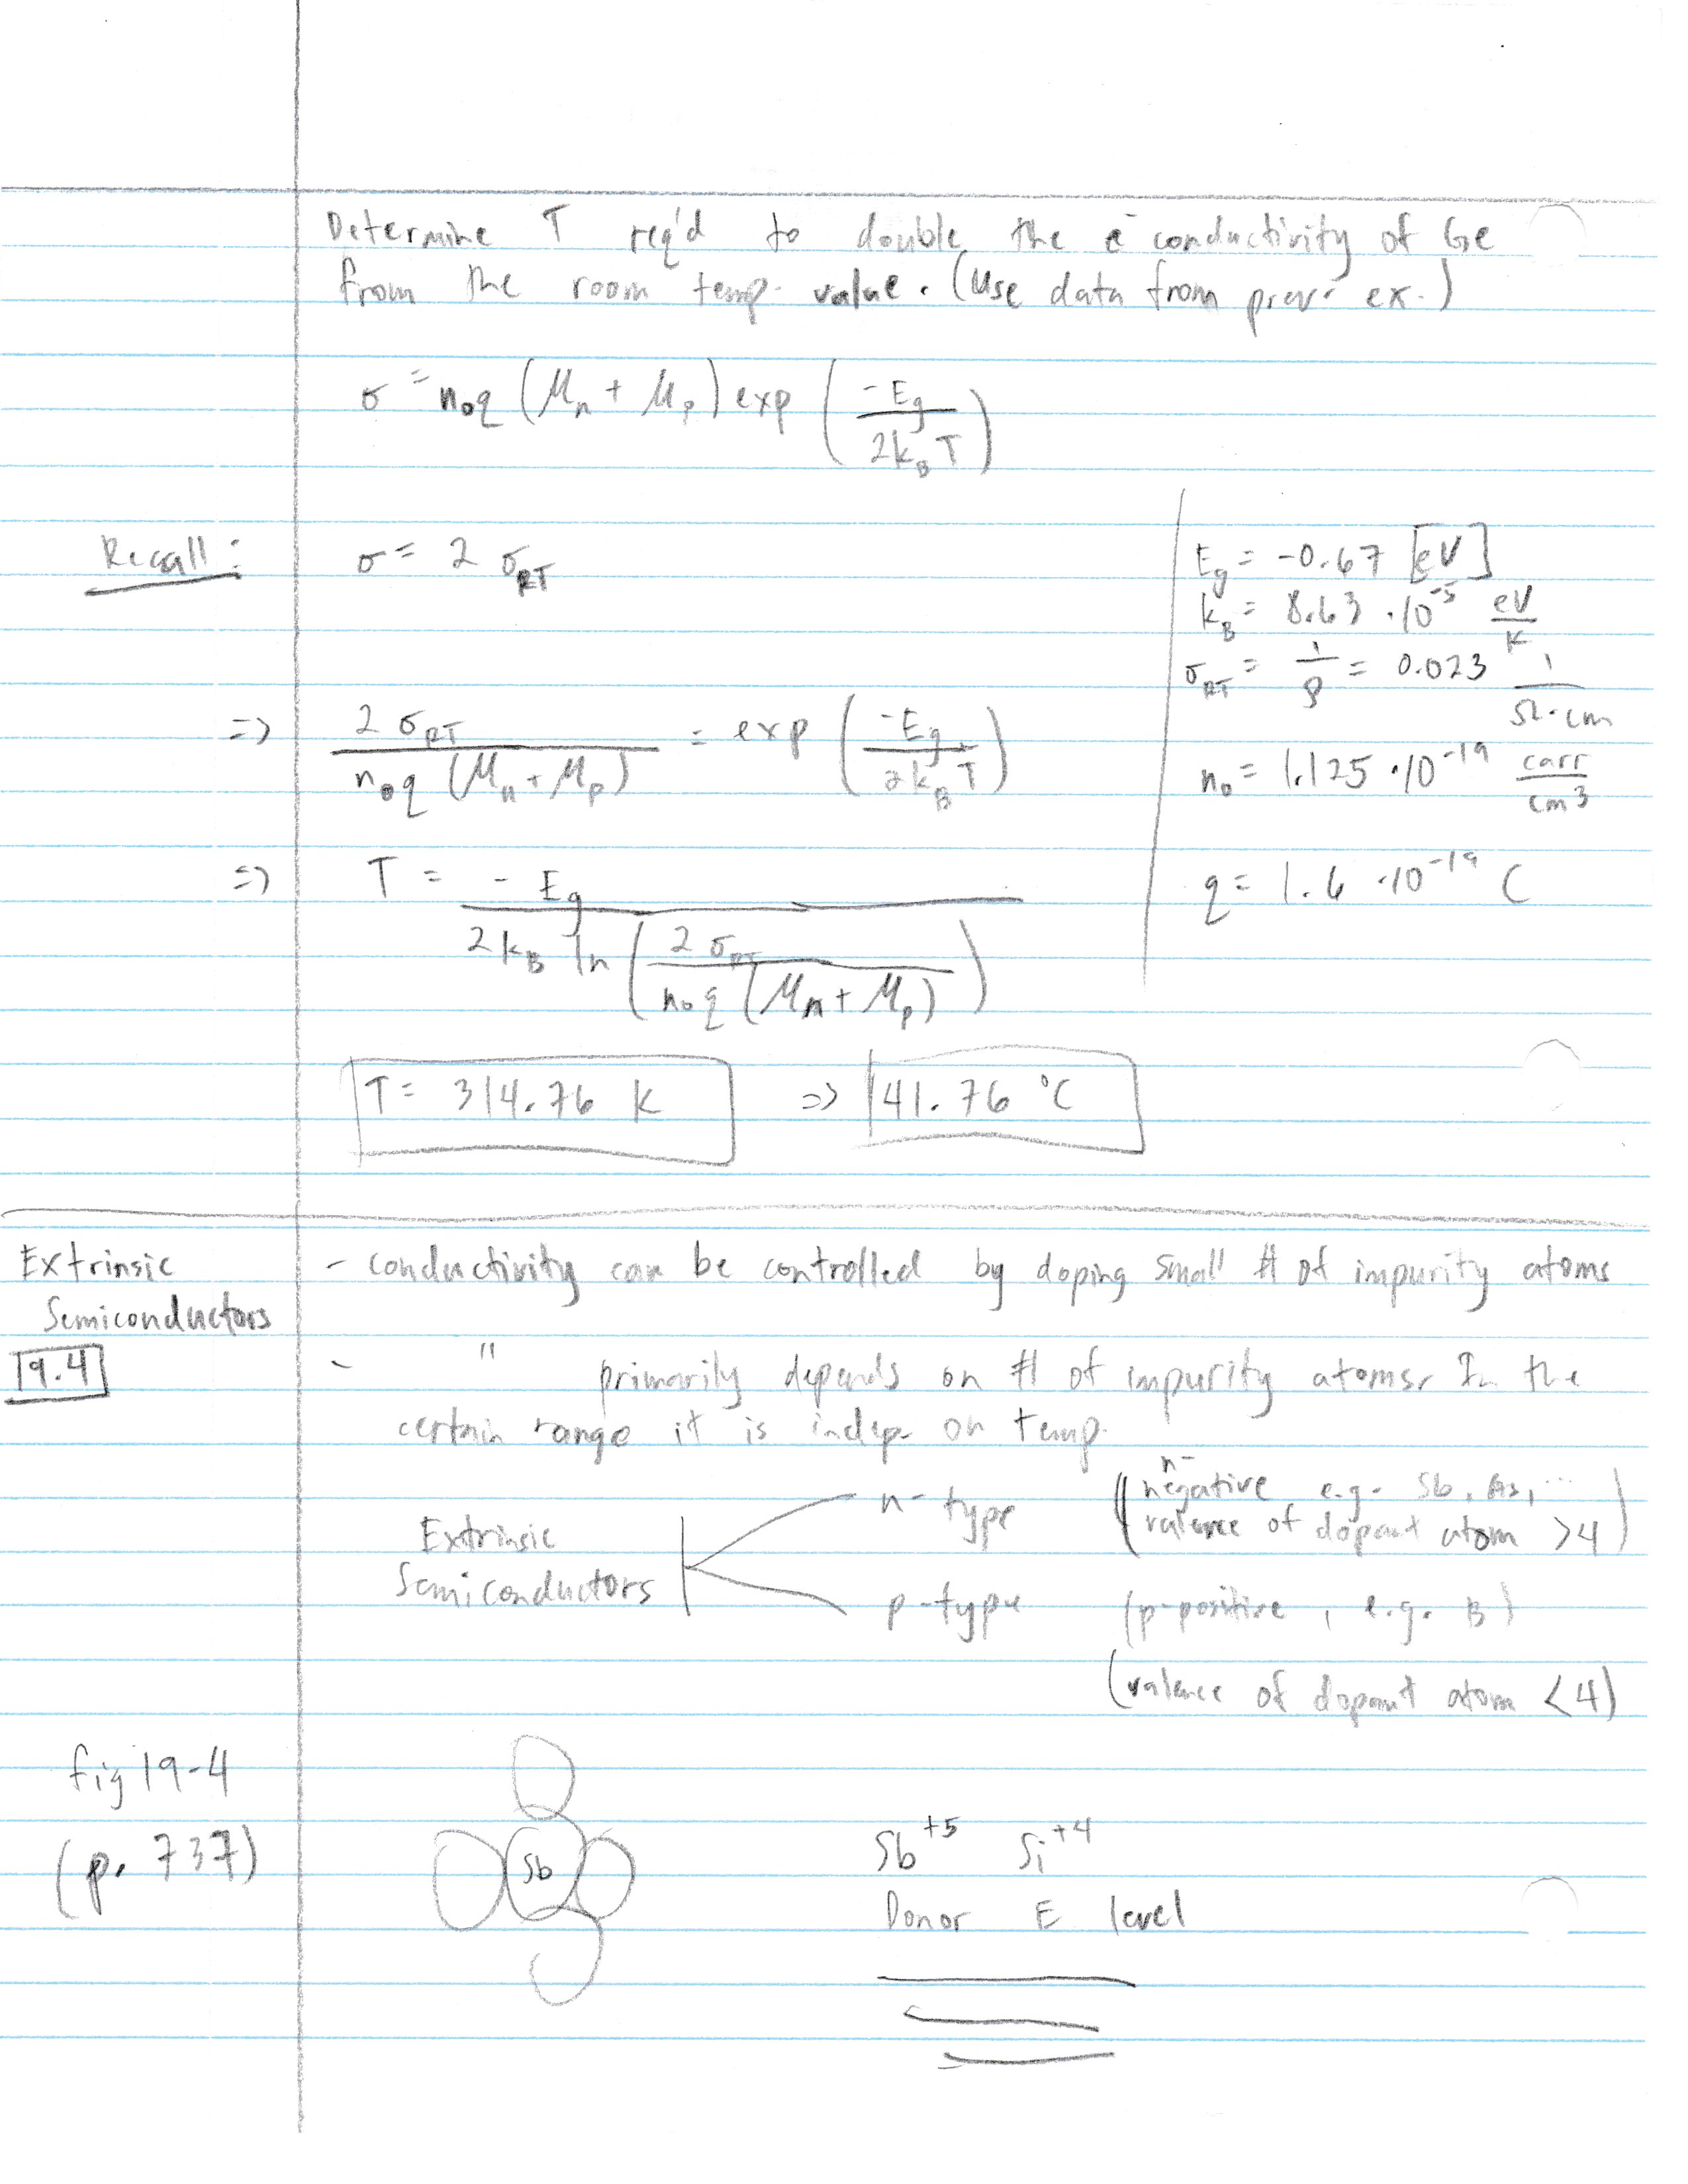 Determine T req'd to double the e⁻ conductivity of Ge
from the room temp. value. (Use data from prev. ex.)
σ = n₀q (μₙ + μₚ) exp (-Eg / 2k_B T)
Recall: σ = 2 σ_RT
Eg = -0.67 [eV]
k_B = 8.63 · 10⁻⁵ eV/K
σ_RT = 1/ρ = 0.023 1/Ω·cm
=> 2 σ_RT / n₀q (μₙ + μₚ) = exp (-Eg / 2k_B T)
n₀ = 1.125 · 10⁻¹⁹ carr/cm³
=> T = - Eg / 2 k_B ln (2 σ_RT / n₀q (μₙ + μₚ))
q = 1.6 · 10⁻¹⁹ C
T = 314.76 K => 41.76 °C
Extrinsic
Semiconductors
19.4
- conductivity can be controlled by doping small # of impurity atoms
- " primarily depends on # of impurity atoms. In the
certain range it is indep. on temp.
Extrinsic
Semiconductors
n-type (n-negative e.g. Sb, As, ...
valence of dopant atom >4)
p-type (p-positive, e.g. B)
(valence of dopant atom <4)
fig 19-4
(p. 737)
Sb
Sb⁺⁵ Si⁺⁴
Donor E level